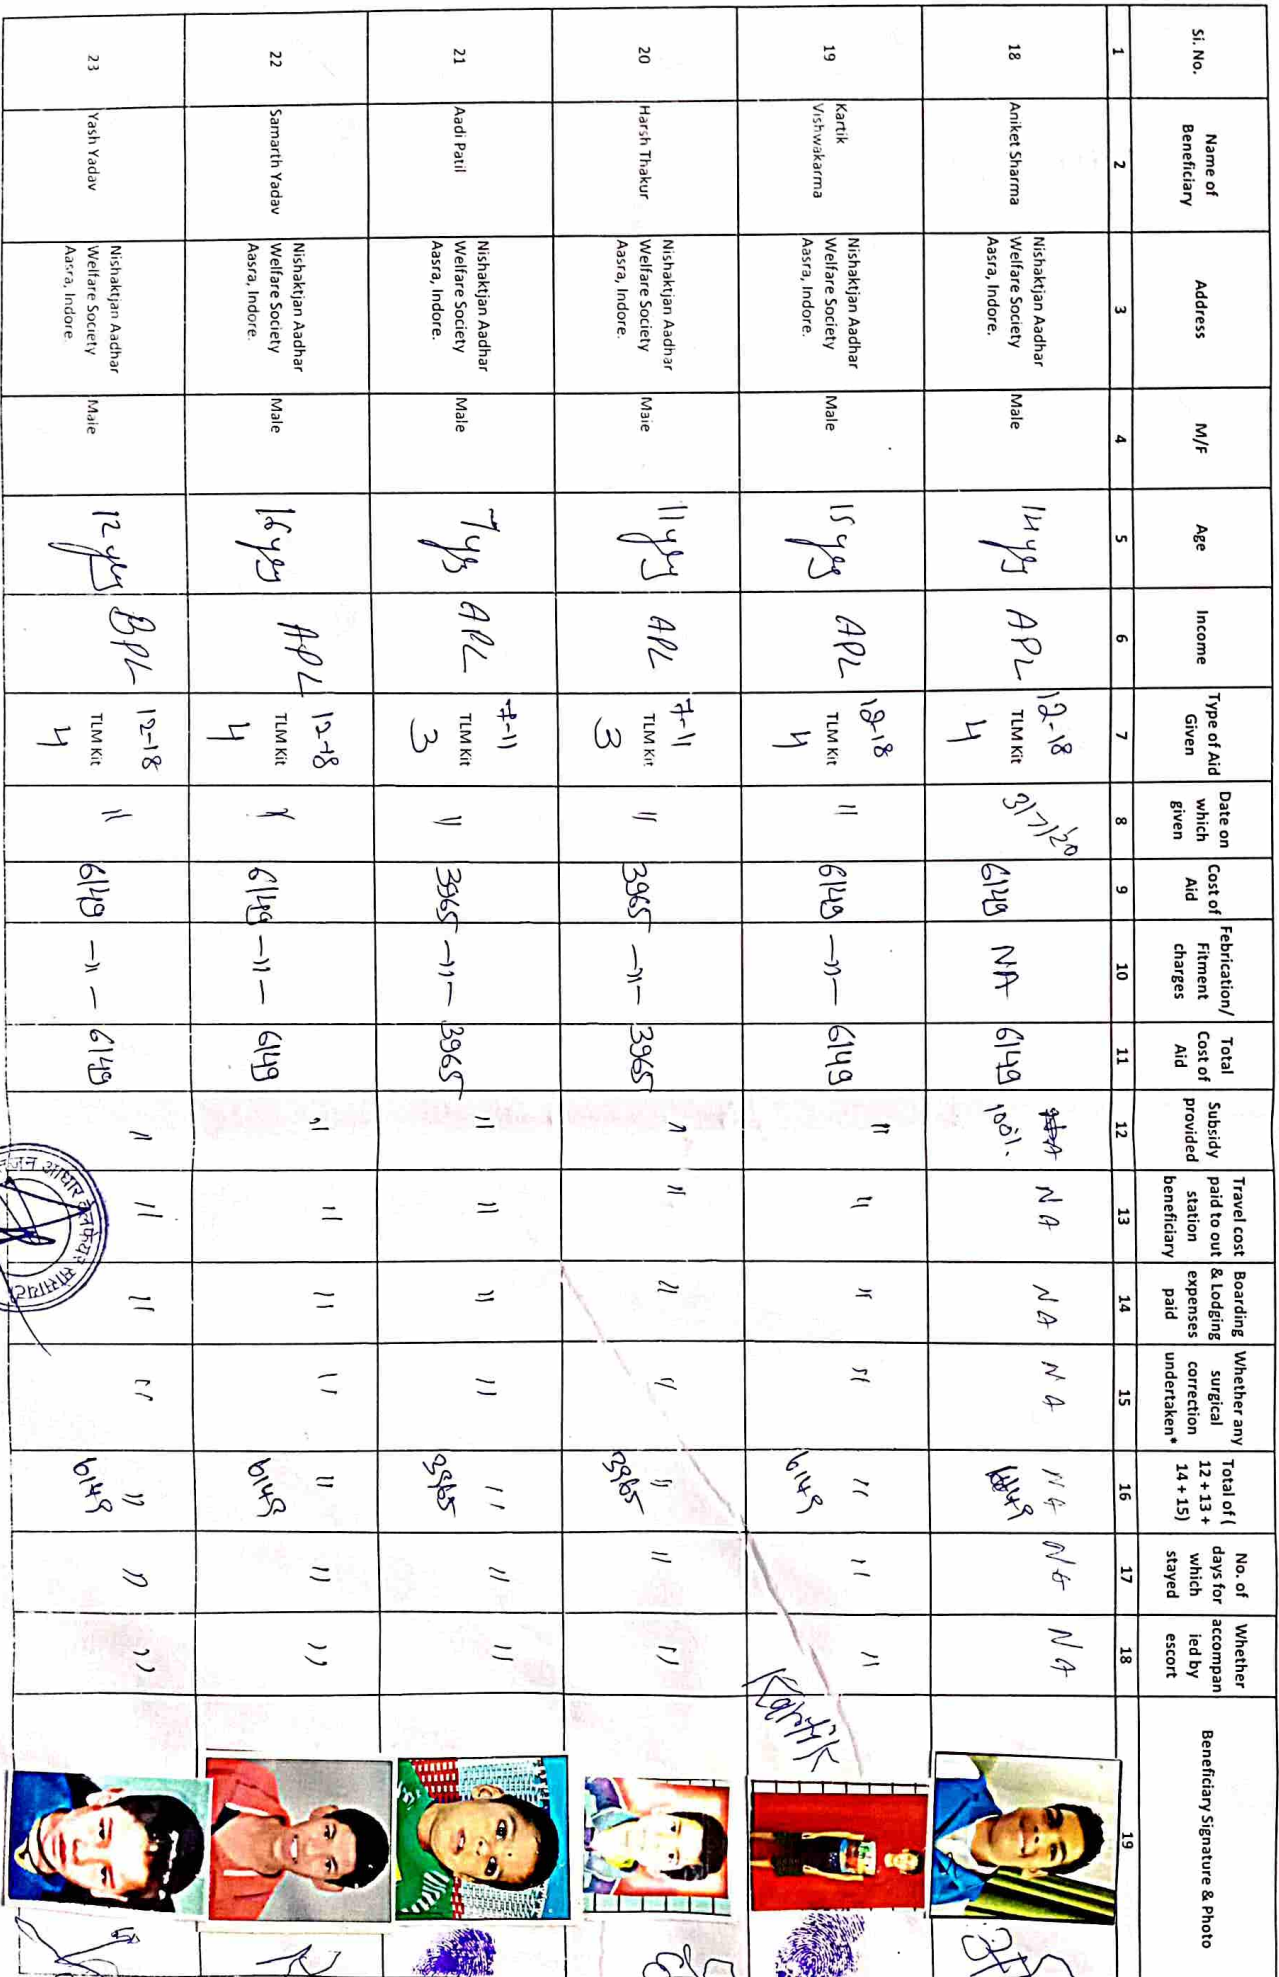 Si. No.
Name of
Beneficiary
Address
M/F
Age
Income
Type of Aid
Given
Date on
which
given
Cost of
Aid
Febrication/
Fitment
charges
Total
Cost of
Aid
Subsidy
provided
Travel cost
paid to out
station
beneficiary
Boarding
& Lodging
expenses
paid
Whether any
surgical
correction
undertaken*
Total of (
12 + 13 +
14 + 15)
No. of
days for
which
stayed
Whether
accompan
ied by
escort
Beneficiary Signature & Photo
1 2 3 4 5 6 7 8 9 10 11 12 13 14 15 16 17 18 19
18
Aniket Sharma
Nishaktjan Aadhar
Welfare Society
Aasra, Indore.
Male
14 yrs
APL
12-18
TLM Kit
4
31/7/20
6149
NA
6149
100%.
NA
NA
NA
NA
6149
NA
NA
19
Kartik
Vishwakarma
Nishaktjan Aadhar
Welfare Society
Aasra, Indore.
Male
15 yrs
APL
12-18
TLM Kit
4
"
6149
—"—
6149
"
"
"
"
"
6149
"
"
Kartik
20
Harsh Thakur
Nishaktjan Aadhar
Welfare Society
Aasra, Indore.
Male
11 yrs
APL
7-11
TLM Kit
3
"
3965
—"—
3965
"
"
"
"
"
3965
"
"
21
Aadi Patil
Nishaktjan Aadhar
Welfare Society
Aasra, Indore.
Male
7 yrs
APL
7-11
TLM Kit
3
"
3965
—"—
3965
"
"
"
"
"
3965
"
"
22
Samarth Yadav
Nishaktjan Aadhar
Welfare Society
Aasra, Indore.
Male
16 yrs
APL
12-18
TLM Kit
4
"
6149
—"—
6149
"
"
"
"
"
6149
"
"
23
Yash Yadav
Nishaktjan Aadhar
Welfare Society
Aasra, Indore.
Male
12 yrs
BPL
12-18
TLM Kit
4
"
6149
—"—
6149
"
"
"
"
"
6149
"
"
आधार वेलफेयर सोसायटी